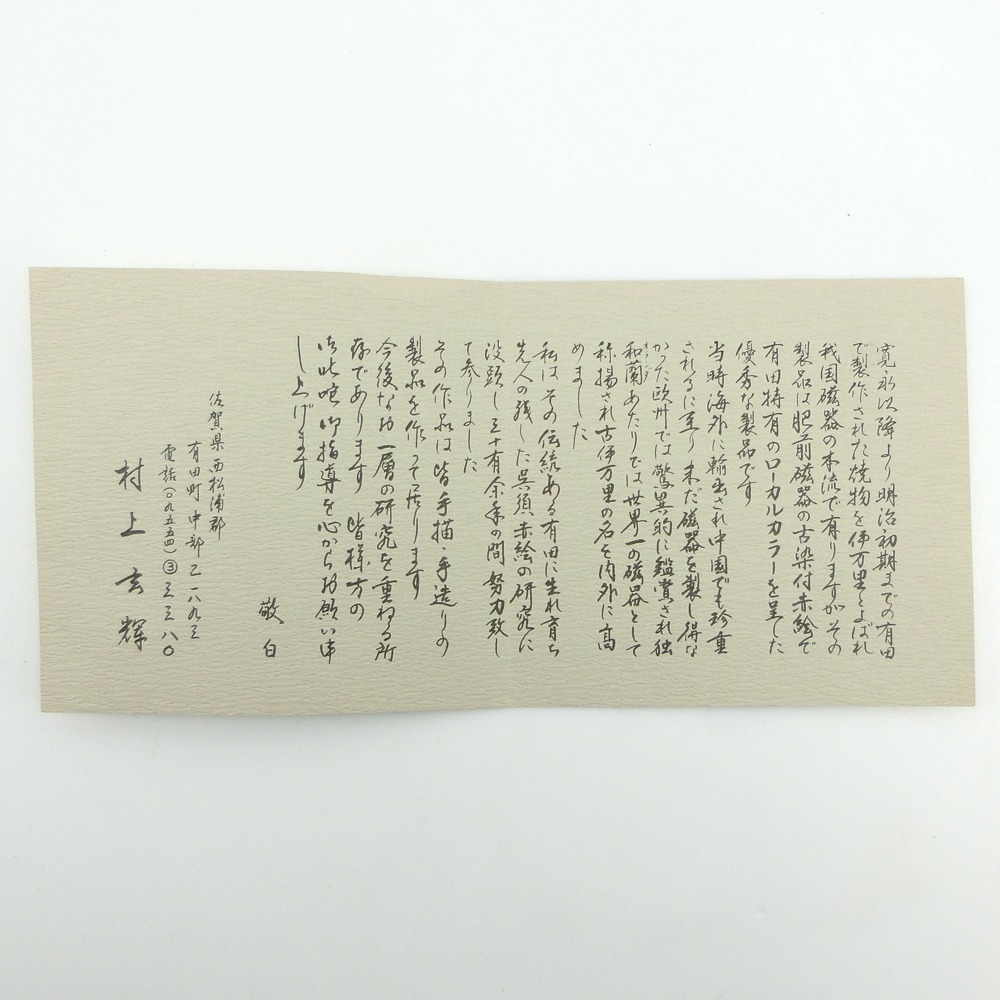 寛永以降より明治初期までの有田
で製作された焼物を伊万里とよばれ
我国磁器の本流で有りますがその
製品は肥前磁器の古染付赤絵で
有田特有のローカルカラーを呈した
優秀な製品です
当時海外に輸出され中国でも珍重
されるに至り未だ磁器を製し得な
かった欧州では驚異的に鑑賞され独
和蘭あたりでは世界一の磁器として
オランダ
称揚され古伊万里の名を内外に高
めました
私はその伝統ある有田に生れ育ち
先人の残した呉須赤絵の研究に
没頭し三十有余年の間努力致し
て参りました
その作品は皆手描・手造りの
製品を作って居ります
今後なお一層の研究を重ねる所
存であります 皆様方の
御叱咤御指導を心からお願い申
し上げます
敬白
佐賀県西松浦郡
有田町中部乙一八九三
電話(〇九五五四)③三三八〇
村上玄輝